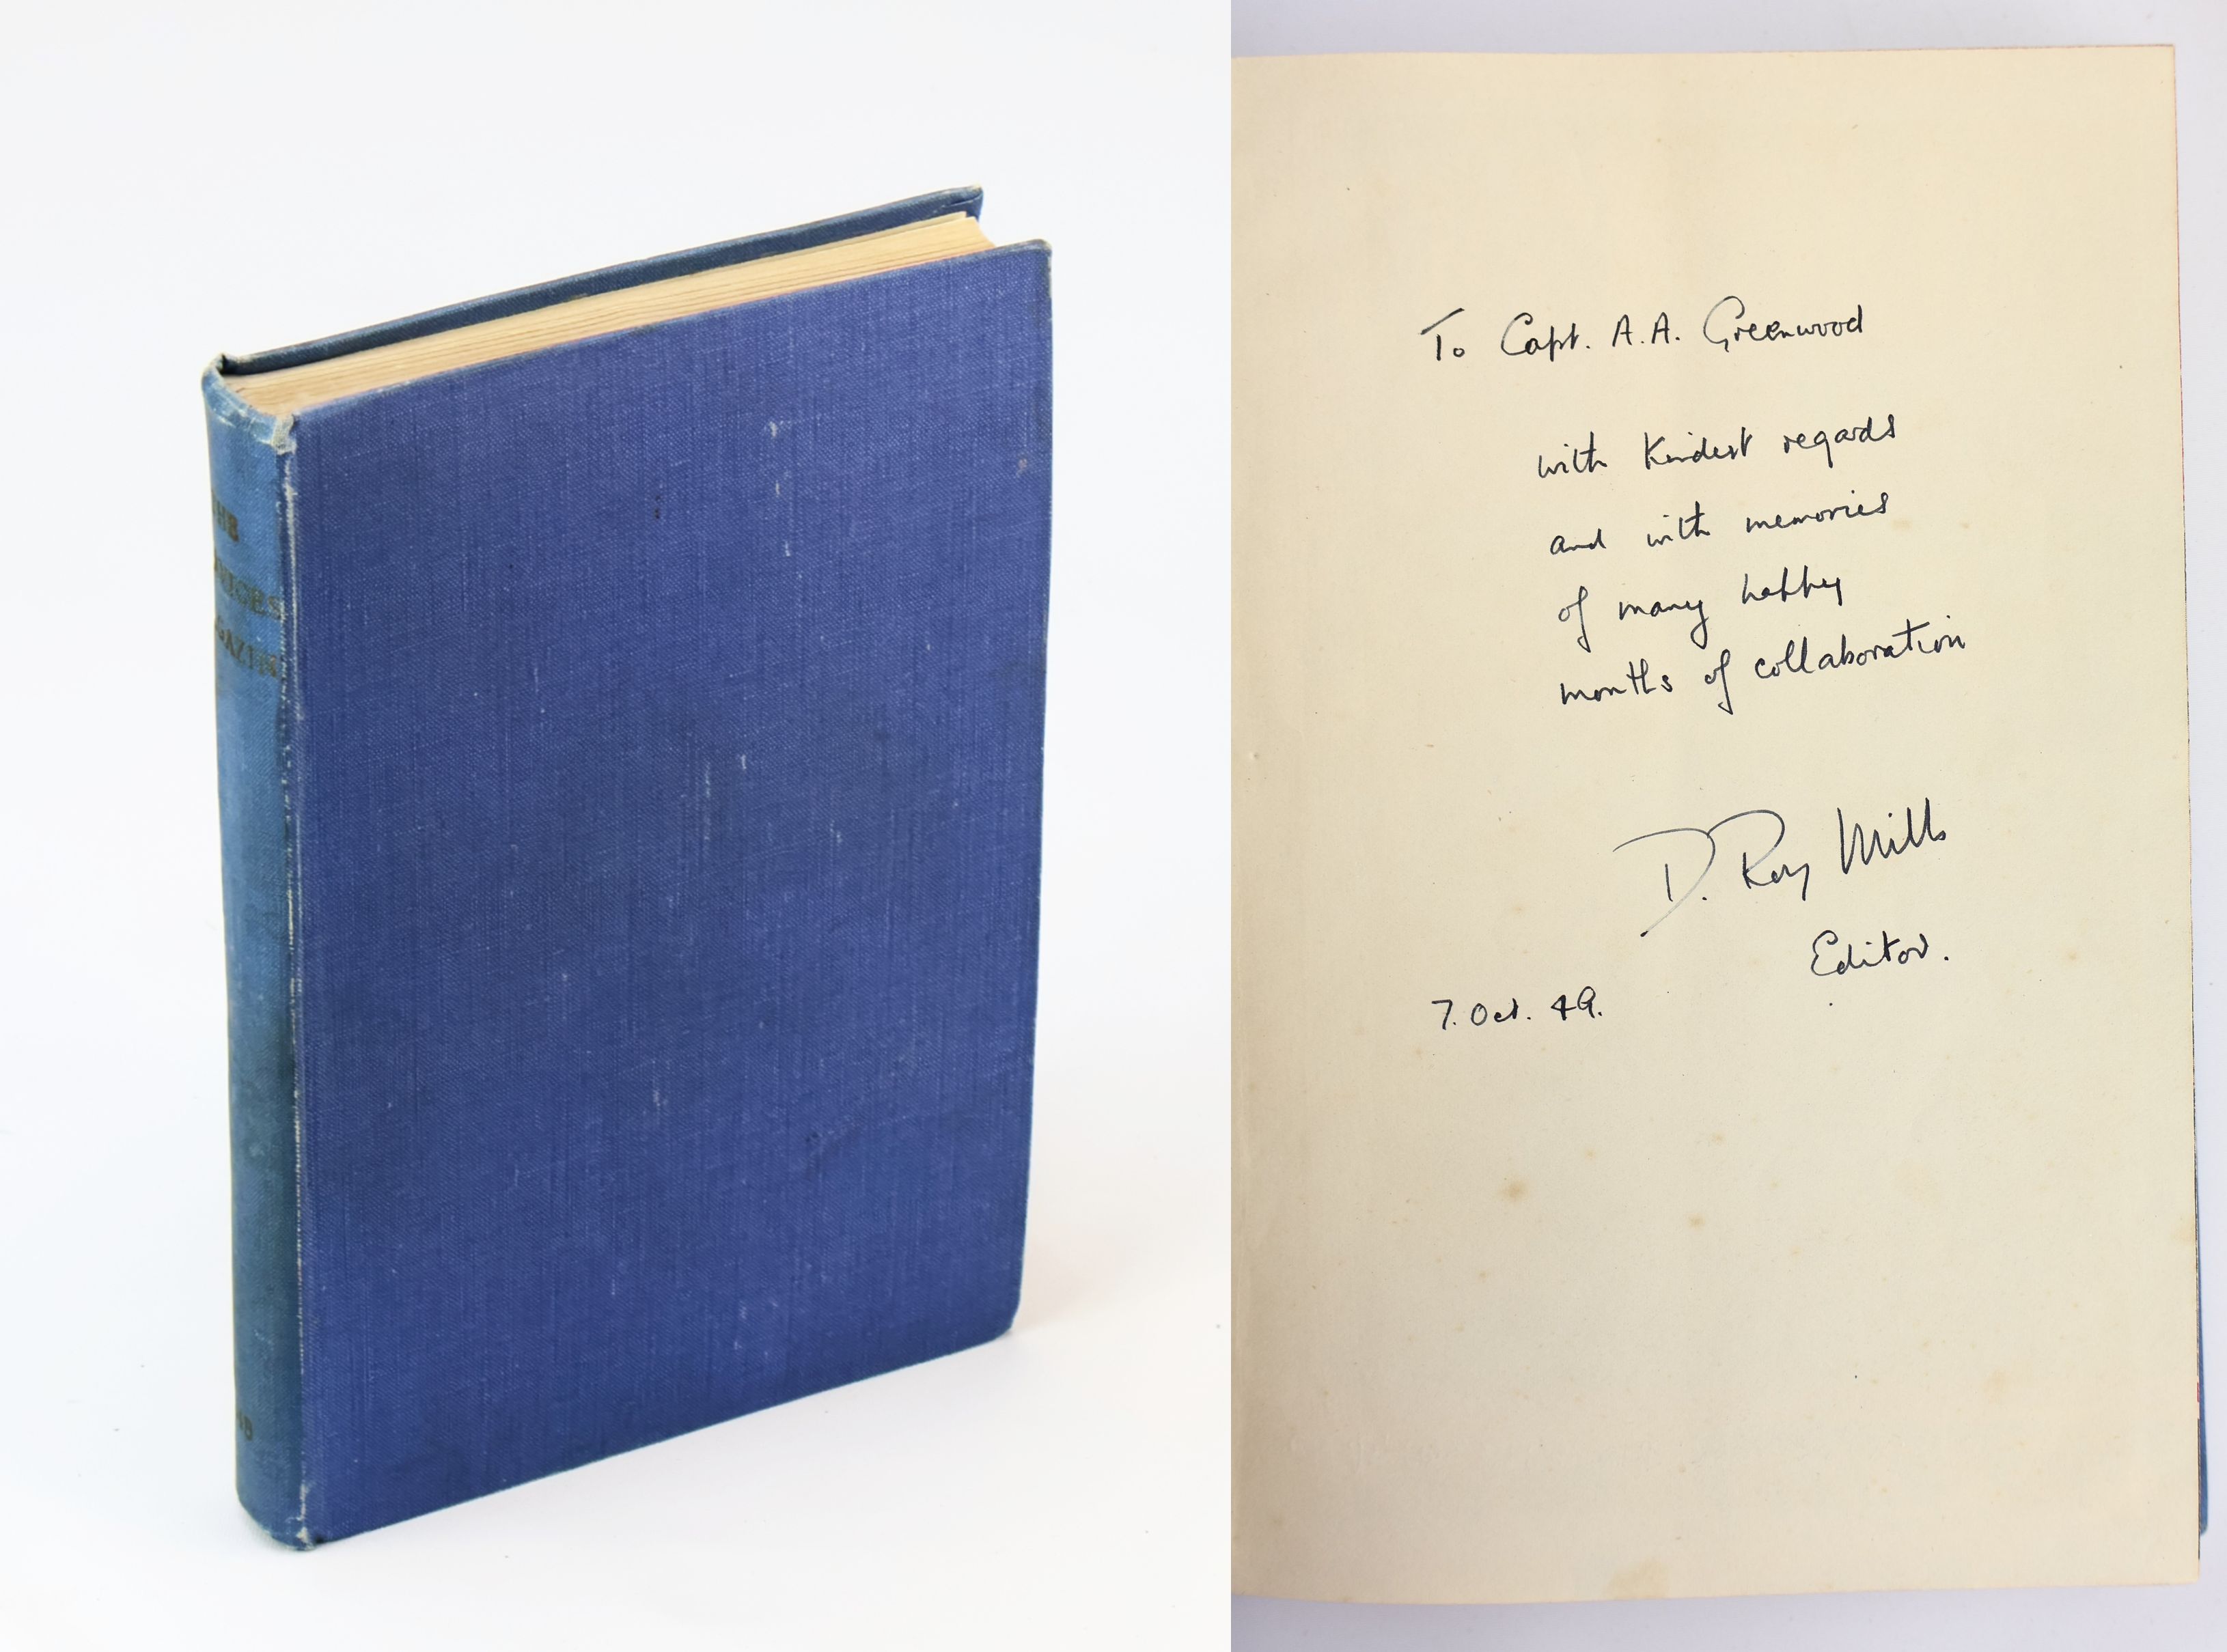 To Capt. A.A. Greenwood
with Kindest regards
and with memories
of many happy
months of collaboration
D. Roy Mills
Editor.
7. Oct. 49.